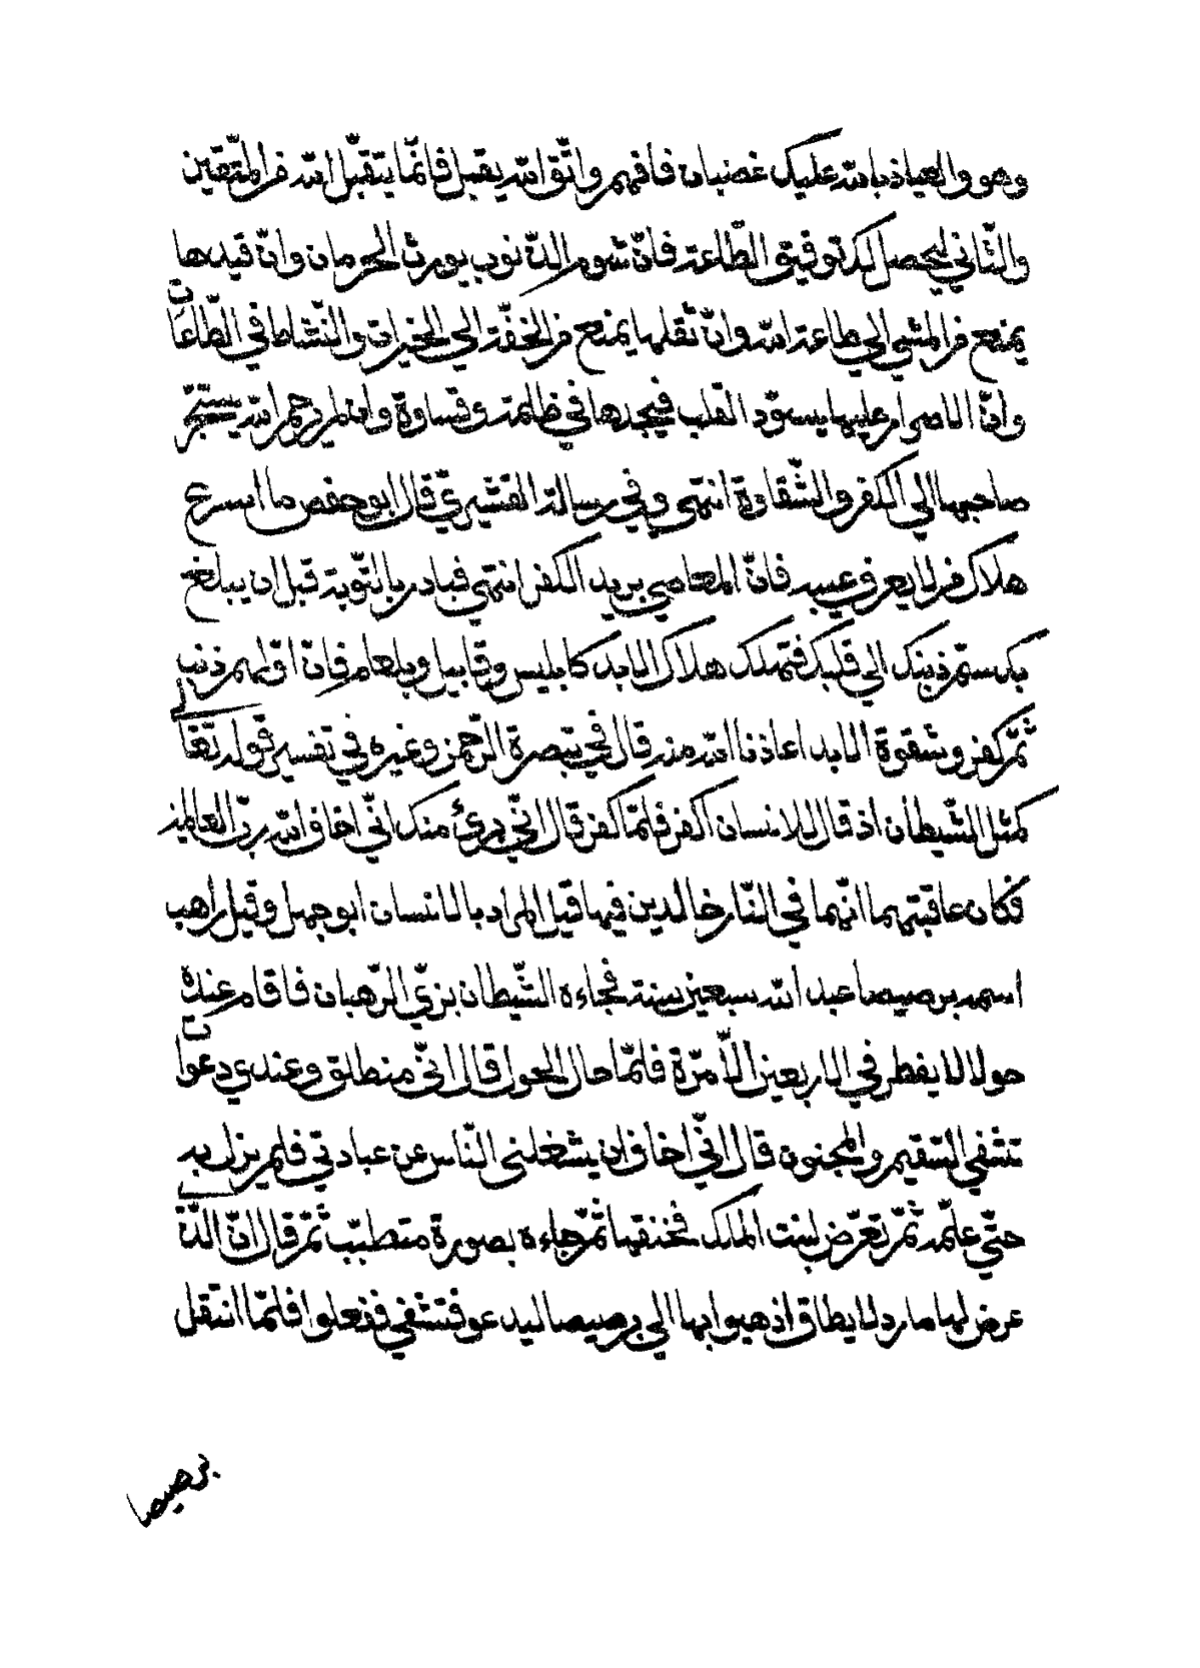 وهو والعياذ بالله عليك غضبان فافهم واتّق الله يقبل فانّما يتقبّل الله من المتّقين
والثّاني ليحصل لك توفيق الطّاعة فانّ شوم الذّنوب يورث الحرمان وانّ قيدها
يمنع من المشي الي طاعة الله وانّ ثقلها يمنع من الخفّة الي الخيرات والنّشاط في الطّاعات
وانّ الاصرار عليها يسوّد القلب فيجدها في ظلمة وقساوة وان لم يرحم الله يستجرّ
صاحبها الي الكفر والشّقاوة انتهي وفي رسالة القشيريّ قال ابو حفص ما اسرع
هلاك من لا يعرف عيبه فانّ المعاصي بريد الكفر انتهي فبادر بالتّوبة قبل ان يبلغ
بك سمّ ذنبك الي قلبك فتهلك هلاك الابد كابليس وقابيل وبلعام فانّ اوّلهم ذنب
ثمّ كفر وشقوة الابد اعاذنا الله منه قال في تبصرة الرّحمن وغيره في تفسير قوله تعالي
كمثل الشّيطان اذ قال للانسان اكفر فلمّا كفر قال انّي بريء منك انّي اخاف الله ربّ العالمين
فكان عاقبتهما انّهما في النّار خالدين فيها قيل المراد بالانسان ابو جهل وقيل راهب
اسمه برصيصا عبد الله سبعين سنة فجاءه الشّيطان بزيّ الرّهبان فاقام عنده
حولا لا يفطر في الاربعين الّا مرّة فلمّا حال الحول قال انّي منطلق وعندي دعوات
تشفي السّقيم والمجنون قال انّي اخاف ان يشغلني النّاس عن عبادتي فلم يزل به
حتّي علّمه ثمّ تعرّض لبنت الملك فخنقها ثمّ جاءه بصورة متطبّب ثمّ قال انّ الّذي
عرض لها مارد لا يطاق اذهبوا بها الي برصيصا ليدعو فتشفي ففعلوا فلمّا انتقل
برصيصا